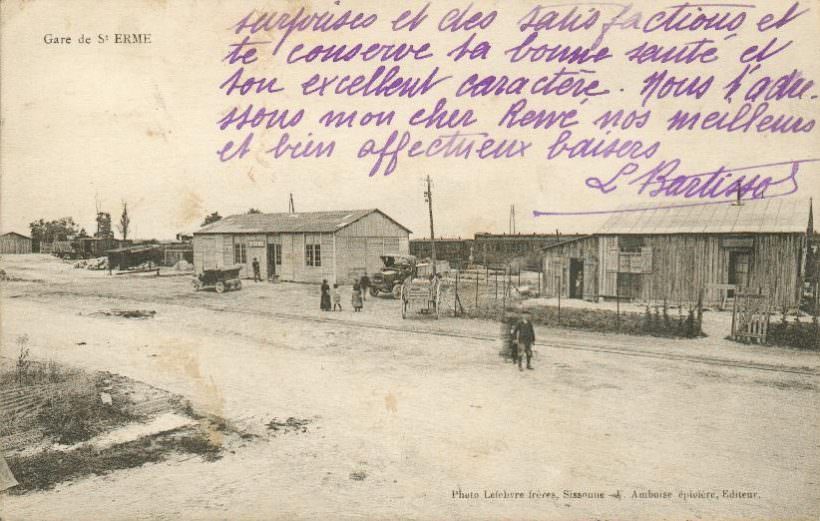 Gare de St ERME
surprises et des satisfactions et
te conserve ta bonne santé et
ton excellent caractère. Nous t'adre-
ssons mon cher René nos meilleurs
et bien affectueux baisers
L Bartisso
Photo Lefebvre frères, Sissonne - J. Amboise épivière, Editeur.